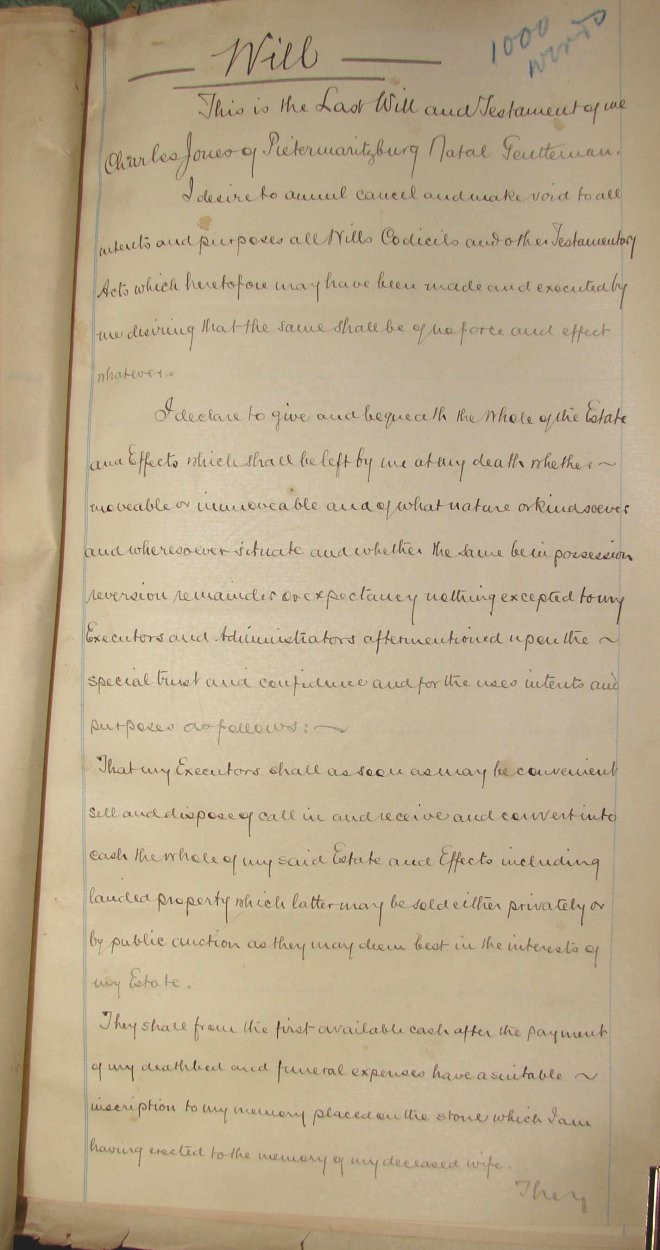 Will
1000
words
This is the Last Will and Testament of me
Charles Jones of Pietermaritzburg Natal Gentleman.
I desire to annul cancel and make void to all
intents and purposes all Wills Codicils and other Testamentary
Acts which heretofore may have been made and executed by
me desiring that the same shall be of no force and effect
whatever.
I declare to give and bequeath the whole of the Estate
and Effects which shall be left by me at my death whether ~
moveable or immoveable and of what nature or kind soever
and wheresoever situate and whether the same be in possession
reversion remainder or expectancy nothing excepted to my
Executors and Administrators aftermentioned upon the ~
special trust and confidence and for the uses intents and
purposes as follows: ~
That my Executors shall as soon as may be convenient
sell and dispose of call in and receive and convert into
cash the whole of my said Estate and Effects including
landed property which latter may be sold either privately or
by public auction as they may deem best in the interests of
my Estate.
They shall from the first available cash after the payment
of my deathbed and funeral expenses have a suitable ~
inscription to my memory placed on the stone which I am
having erected to the memory of my deceased wife.
They